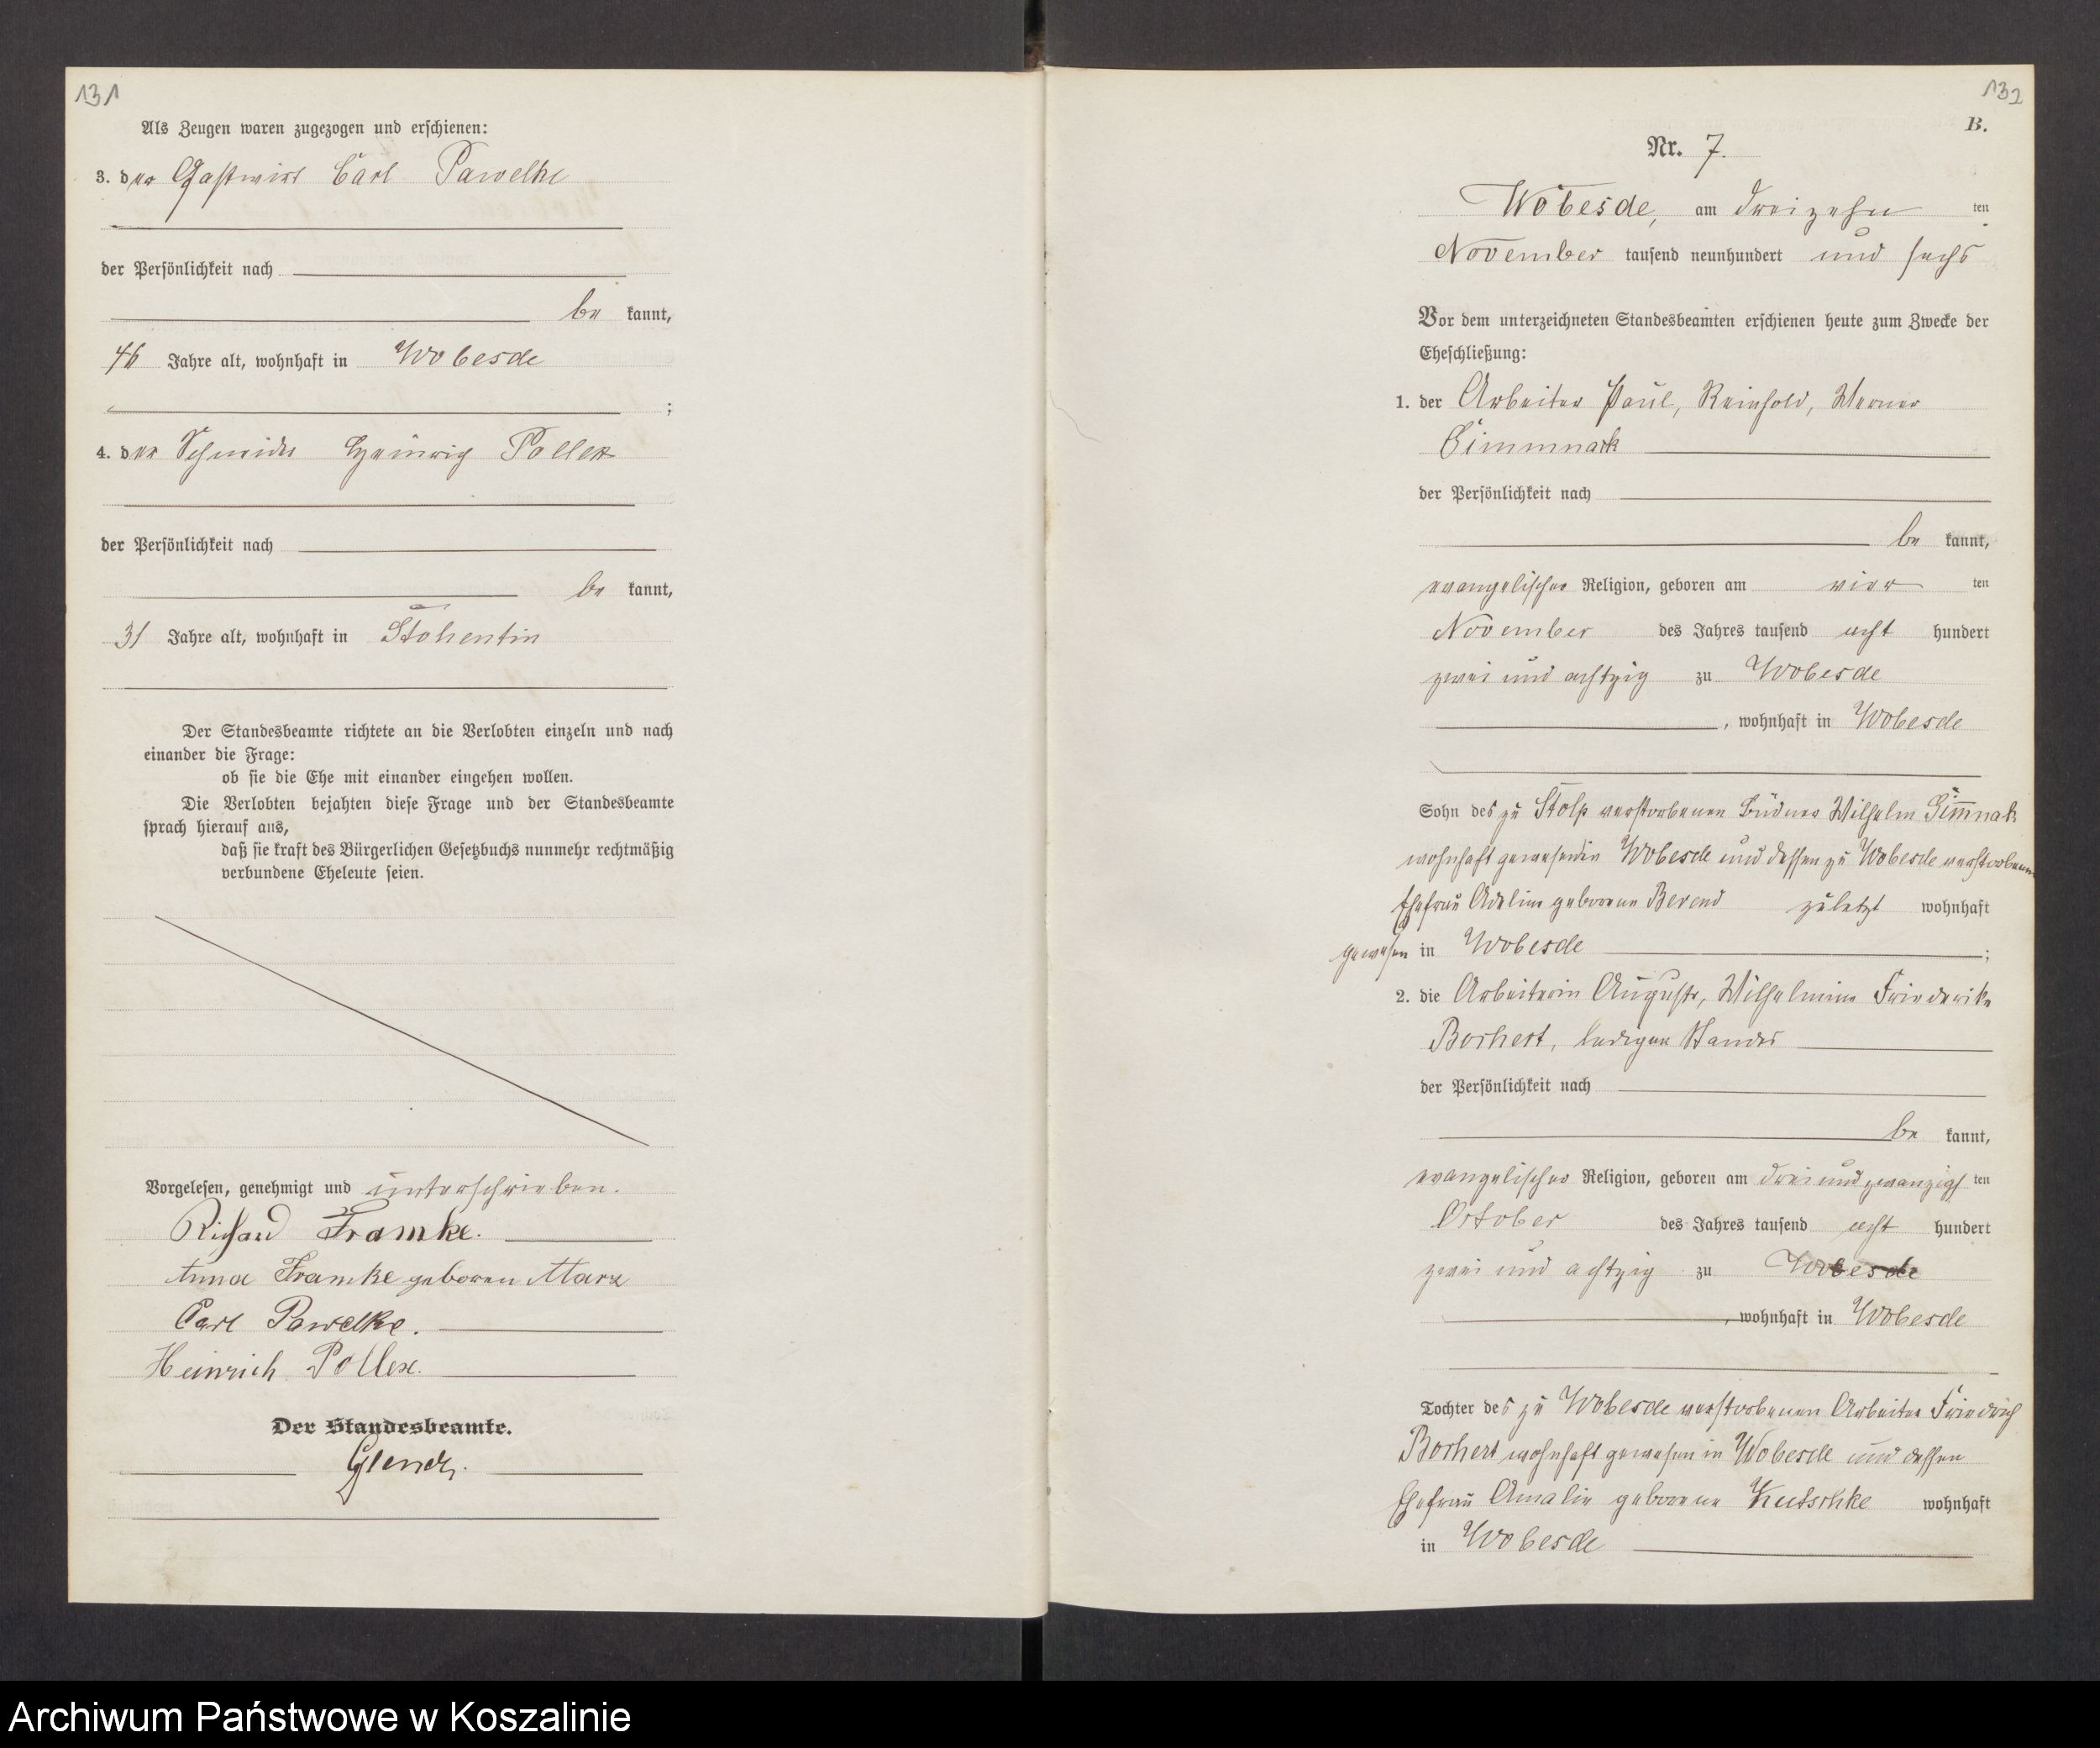 131
Als Zeugen waren zugezogen und erschienen:
3. der Gastwirt Carl Pawelke
der Persönlichkeit nach
be kannt,
46 Jahre alt, wohnhaft in Wobesde
;
4. der Schmied Heinrich Pollex
der Persönlichkeit nach
be kannt,
31 Jahre alt, wohnhaft in Stohentin
Der Standesbeamte richtete an die Verlobten einzeln und nach
einander die Frage:
ob sie die Ehe mit einander eingehen wollen.
Die Verlobten bejahten diese Frage und der Standesbeamte
sprach hierauf aus,
daß sie kraft des Bürgerlichen Gesetzbuchs nunmehr rechtmäßig
verbundene Eheleute seien.
Vorgelesen, genehmigt und unterschrieben.
Richard Framke.
Anna Framke geboren Marx
Carl Pawelke.
Heinrich Pollex.
Der Standesbeamte.
132
B.
Nr. 7.
Wobesde, am dreizehn ten
November tausend neunhundert und sechs
Vor dem unterzeichneten Standesbeamten erschienen heute zum Zwecke der
Eheschließung:
1. der Arbeiter Paul, Reinhold, Werner
der Persönlichkeit nach
be kannt,
evangelischer Religion, geboren am vier ten
November des Jahres tausend acht hundert
zwei und achtzig zu Wobesde
, wohnhaft in Wobesde
Sohn des zu Stolp verstorbenen Büdner Wilhelm
wohnhaft gewesen in Wobesde und dessen zu Wobesde verstorbenen
Ehefrau Adeline geborene Berend zuletzt wohnhaft
gewesen in Wobesde ;
2. die Arbeiterin Auguste, Wilhelmine Friederike
Borchert, ledigen Standes
der Persönlichkeit nach
be kannt,
evangelischer Religion, geboren am drei und zwanzigs ten
October des Jahres tausend acht hundert
zwei und achtzig zu Wobesde
, wohnhaft in Wobesde
Tochter des zu Wobesde verstorbenen Arbeiter Friedrich
Borchert wohnhaft gewesen in Wobesde und dessen
Ehefrau Amalie geborene Kutschke wohnhaft
in Wobesde
Archiwum Państwowe w Koszalinie